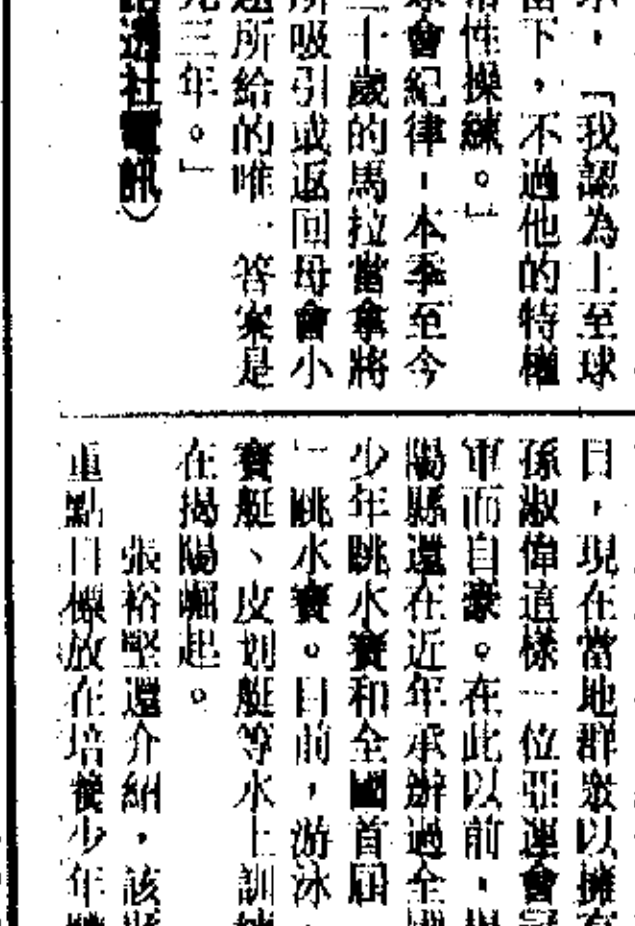 求，「我認為上至球
當下，不過他的特權
活性操練。」
球會紀律，本季至今
三十歲的馬拉當拿將
所吸引或返回母會小
題所給的唯一答案是
九三年。」
路透社電訊）
目，現在當地群眾以擁有
孫淑偉這樣一位亞運會冠
軍而自豪。在此以前，揭
陽縣還在近年承辦過全國
少年跳水賽和全國首屆
一跳水賽。目前，游泳、
賽艇、皮划艇等水上訓練
在揭陽崛起。
張裕堅還介紹，該縣
重點目標放在培養少年